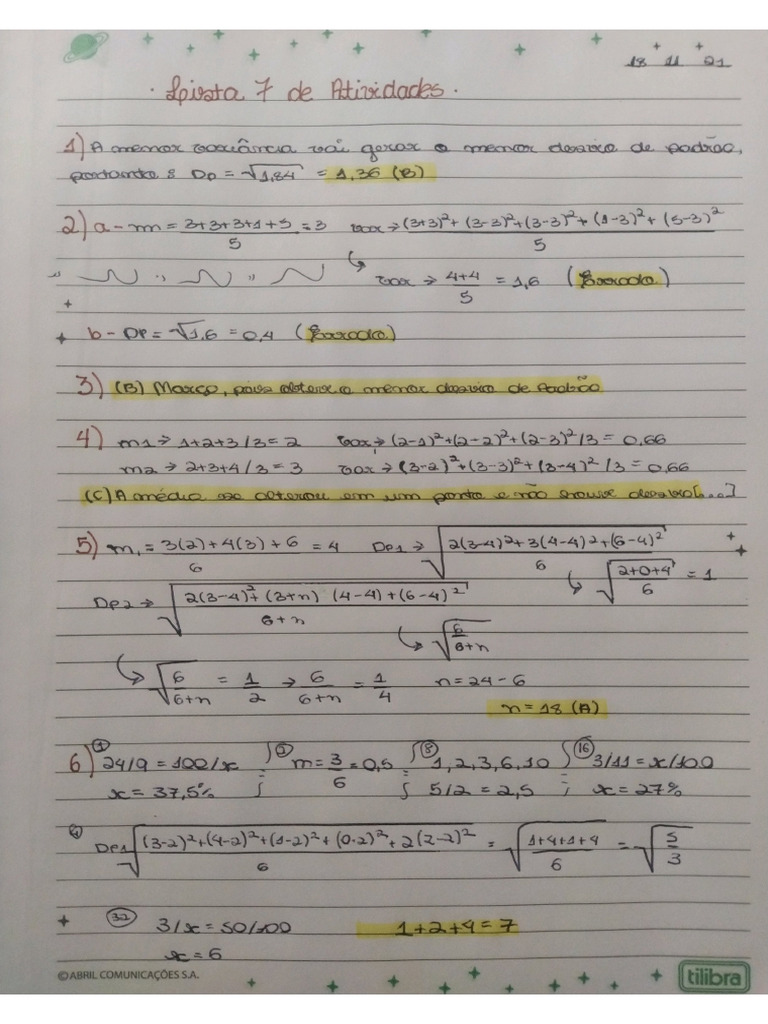 18 11 21
· Lista 7 de Atividades ·
1) A menor variância vai gerar o menor desvio de padrão,
portanto : Dp = √1,84 = 1,36 (B)
2) a - m = 3+3+3+1+5 / 5 = 3 var → (3+3)² + (3-3)² + (3-3)² + (1-3)² + (5-3)² / 5
var → 4+4 / 5 = 1,6 (Errado)
b - DP = √1,6 = 0,4 (Errado)
3) (B) Março, pois obteve o menor desvio de Padrão
4) m1 → 1+2+3/3 = 2 var → (2-1)² + (2-2)² + (2-3)² /3 = 0,66
m2 → 2+3+4/3 = 3 var → (3-2)² + (3-3)² + (3-4)² /3 = 0,66
(C) A média se alterou em um ponto e não houve desvio [...]
5) m₁ = 3(2)+4(3)+6 / 6 = 4 Dp1 → √2(3-4)²+3(4-4)²+(6-4)² / 6
↳ √2+0+4 / 6 = 1
Dp2 → √2(3-4)²+(3+n) (4-4)+(6-4)² / 6+n
↳ √6 / 6+n
↳ √6 / 6+n = 1/2 → 6 / 6+n = 1/4 n = 24 - 6
n = 18 (A)
6) ① 24/9 = 100/x m = 3/6 = 0,5 ⑧ 1, 2, 3, 6, 10 ⑯ 3/11 = x/100
x = 37,5% 5/2 = 2,5 x = 27%
④ Dp1 √(3-2)²+(4-2)²+(1-2)²+(0-2)²+2(2-2)² / 6 = √1+4+1+4 / 6 = √5/3
㉜ 3/x = 50/100 1+2+4 = 7
x = 6
© ABRIL COMUNICAÇÕES S.A. tilibra